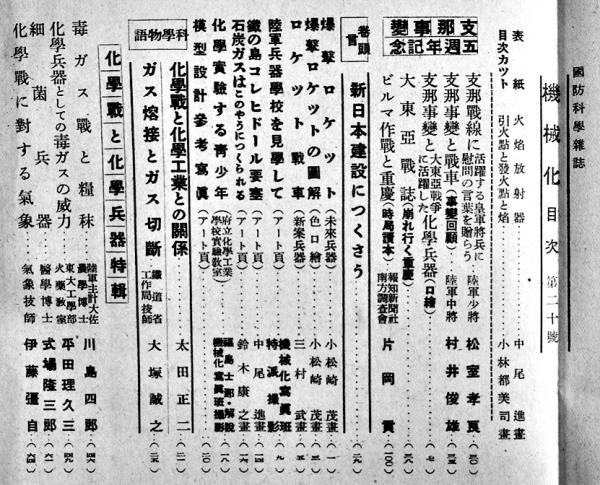 國防科學雜誌
機械化 目次 第二十號
表紙 火焰放射器 中尾進畫
目次カツト 引火點と發火點と焰 小林都美司畫
支那事變五週年記念
支那戰線に活躍する皇軍將兵に慰問の言葉を贈らう 陸軍少將 松室孝良
支那事變と戰車(事變回顧) 陸軍中將 村井俊雄
支那事變と大東亞戰爭に活躍した化學兵器(口繪)
大東亞戰誌(崩れ行く重慶)
ビルマ作戰と重慶(時局讀本) 報知新聞社南方調査會 片岡貢(一〇〇)
卷頭言
新日本建設につくさう
爆擊ロケツト(未來兵器) 小松崎茂畫
爆擊ロケツトの圖解(色口繪) 小松崎茂畫
ロケツト戰車(新案兵器) 三村武畫
陸軍兵器學校を見學して(アート頁) 機械化寫眞班特派撮影
鐵の島コレヒドール要塞(アート頁) 中尾進畫
石炭ガスはこのやうにつくられる(アート頁) 鈴木康之畫
化學實驗する青少年(府立化學工業學校實驗敎室) 機械化寫眞班撮影
模型設計參考寫眞(アート頁) 福島士郎・解說
科學物語
化學戰と化學工業との關係 太田正二
ガス熔接とガス切斷 鐵道省工作局技師 大塚誠之
化學戰と化學兵器特輯
毒ガス戰と糧秣 陸軍主計大佐農學博士 川島四郎
化學兵器としての毒ガスの威力 東大工學部火藥敎室 平田理久三
細菌兵器 醫學博士 式場隆三郎
化學戰に對する氣象 氣象技師 伊藤彊自